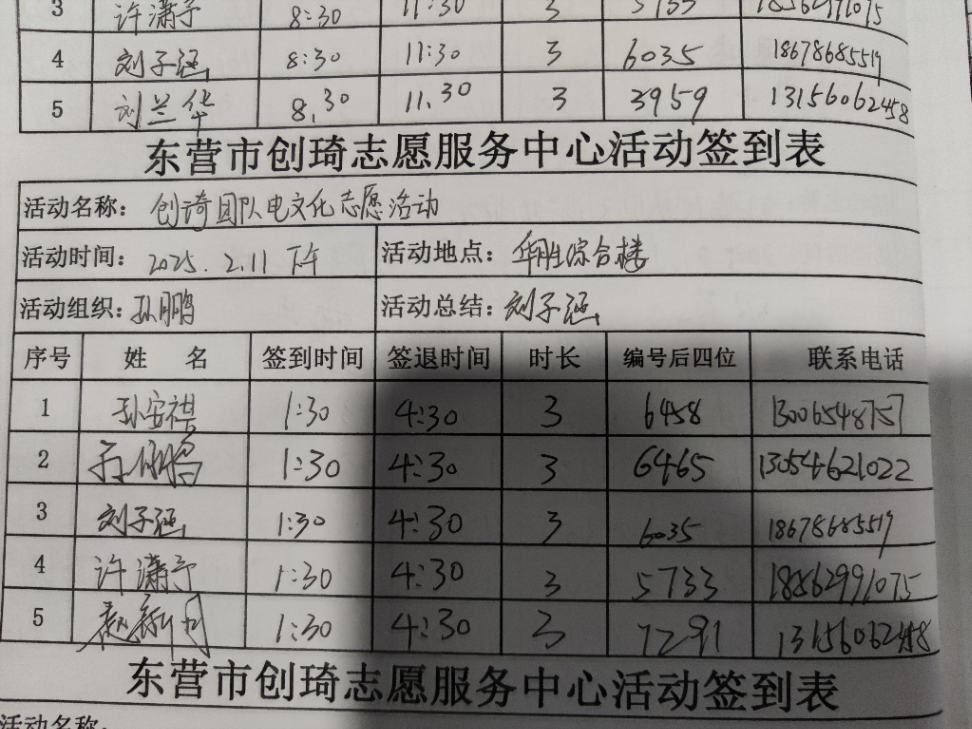 3 许潇予 8:30 11:30 3 5733 18562991075
4 刘子涵 8:30 11:30 3 6035 18678685519
5 刘兰华 8.30 11.30 3 3959 13156062458
东营市创琦志愿服务中心活动签到表
活动名称: 创琦团队电文化志愿活动
活动时间: 2025.2.11 下午 活动地点: 华胜综合楼
活动组织: 孙鹏 活动总结: 刘子涵
序号 姓 名 签到时间 签退时间 时长 编号后四位 联系电话
1 孙安祺 1:30 4:30 3 6458 13006548757
2 1:30 4:30 3 6465 13054621022
3 刘子涵 1:30 4:30 3 6035 18678685519
4 许潇予 1:30 4:30 3 5733 18562991075
5 1:30 4:30 3 7291 13156062458
东营市创琦志愿服务中心活动签到表
活动名称: